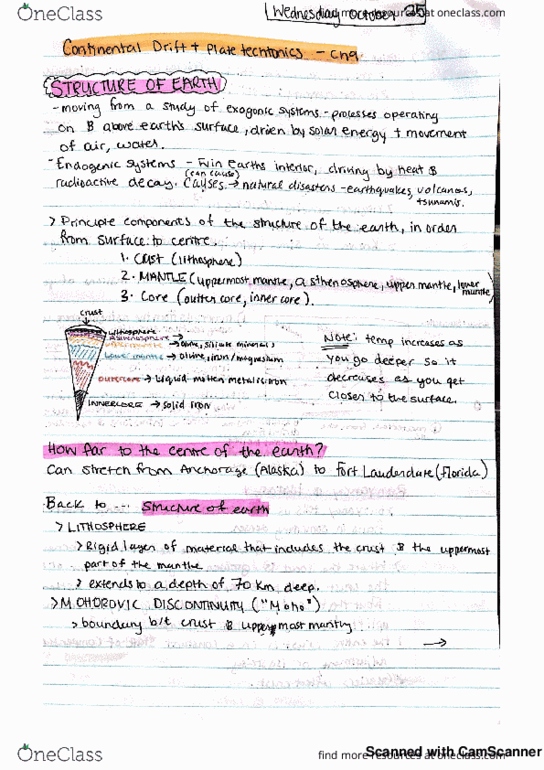 Wednesday October 25
OneClass
find more resources at oneclass.com
Continental Drift + Plate techtonics - Ch9.
STRUCTURE OF EARTH
- moving from a study of exogonic systems - processes operating
on & above earth's surface, driven by solar energy + movement
of air, water.
- Endogenic systems - F in earths interior, driving by heat &
radioactive decay. (can cause) Causes → natural disasters - earthquakes, volcanoes,
tsunamis.
> Principle components of the structure of the earth, in order
from surface to centre
1. Crust (lithosphere)
2. MANTLE (uppermost mantle, asthenosphere, upper mantle, lower mantle)
3. Core (outter core, inner core).
crust
Lithosphere
Asthenosphere →
uppermantle → olvine, silicate minerals
Lower mantle → olvine, iron/magnesium
outercore → Liquid molten metalic iron
INNERCORE → solid iron
Note: temp increases as
you go deeper so it
decreases as you get
closer to the surface.
How far to the centre of the earth?
Can stretch from Anchorage (Alaska) to Fort Lauderdate (Florida)
Back to ... Structure of earth
> LITHOSPHERE
> Rigid layer of material that includes the crust & the uppermost
part of the manthe
> extends to a depth of 70 km deep.
> MOHOROVIC DISCONTINUITY ("Moho")
> boundary b/t crust & uppermost mantly
→
OneClass
find more resources at oneclass.com
Scanned with CamScanner